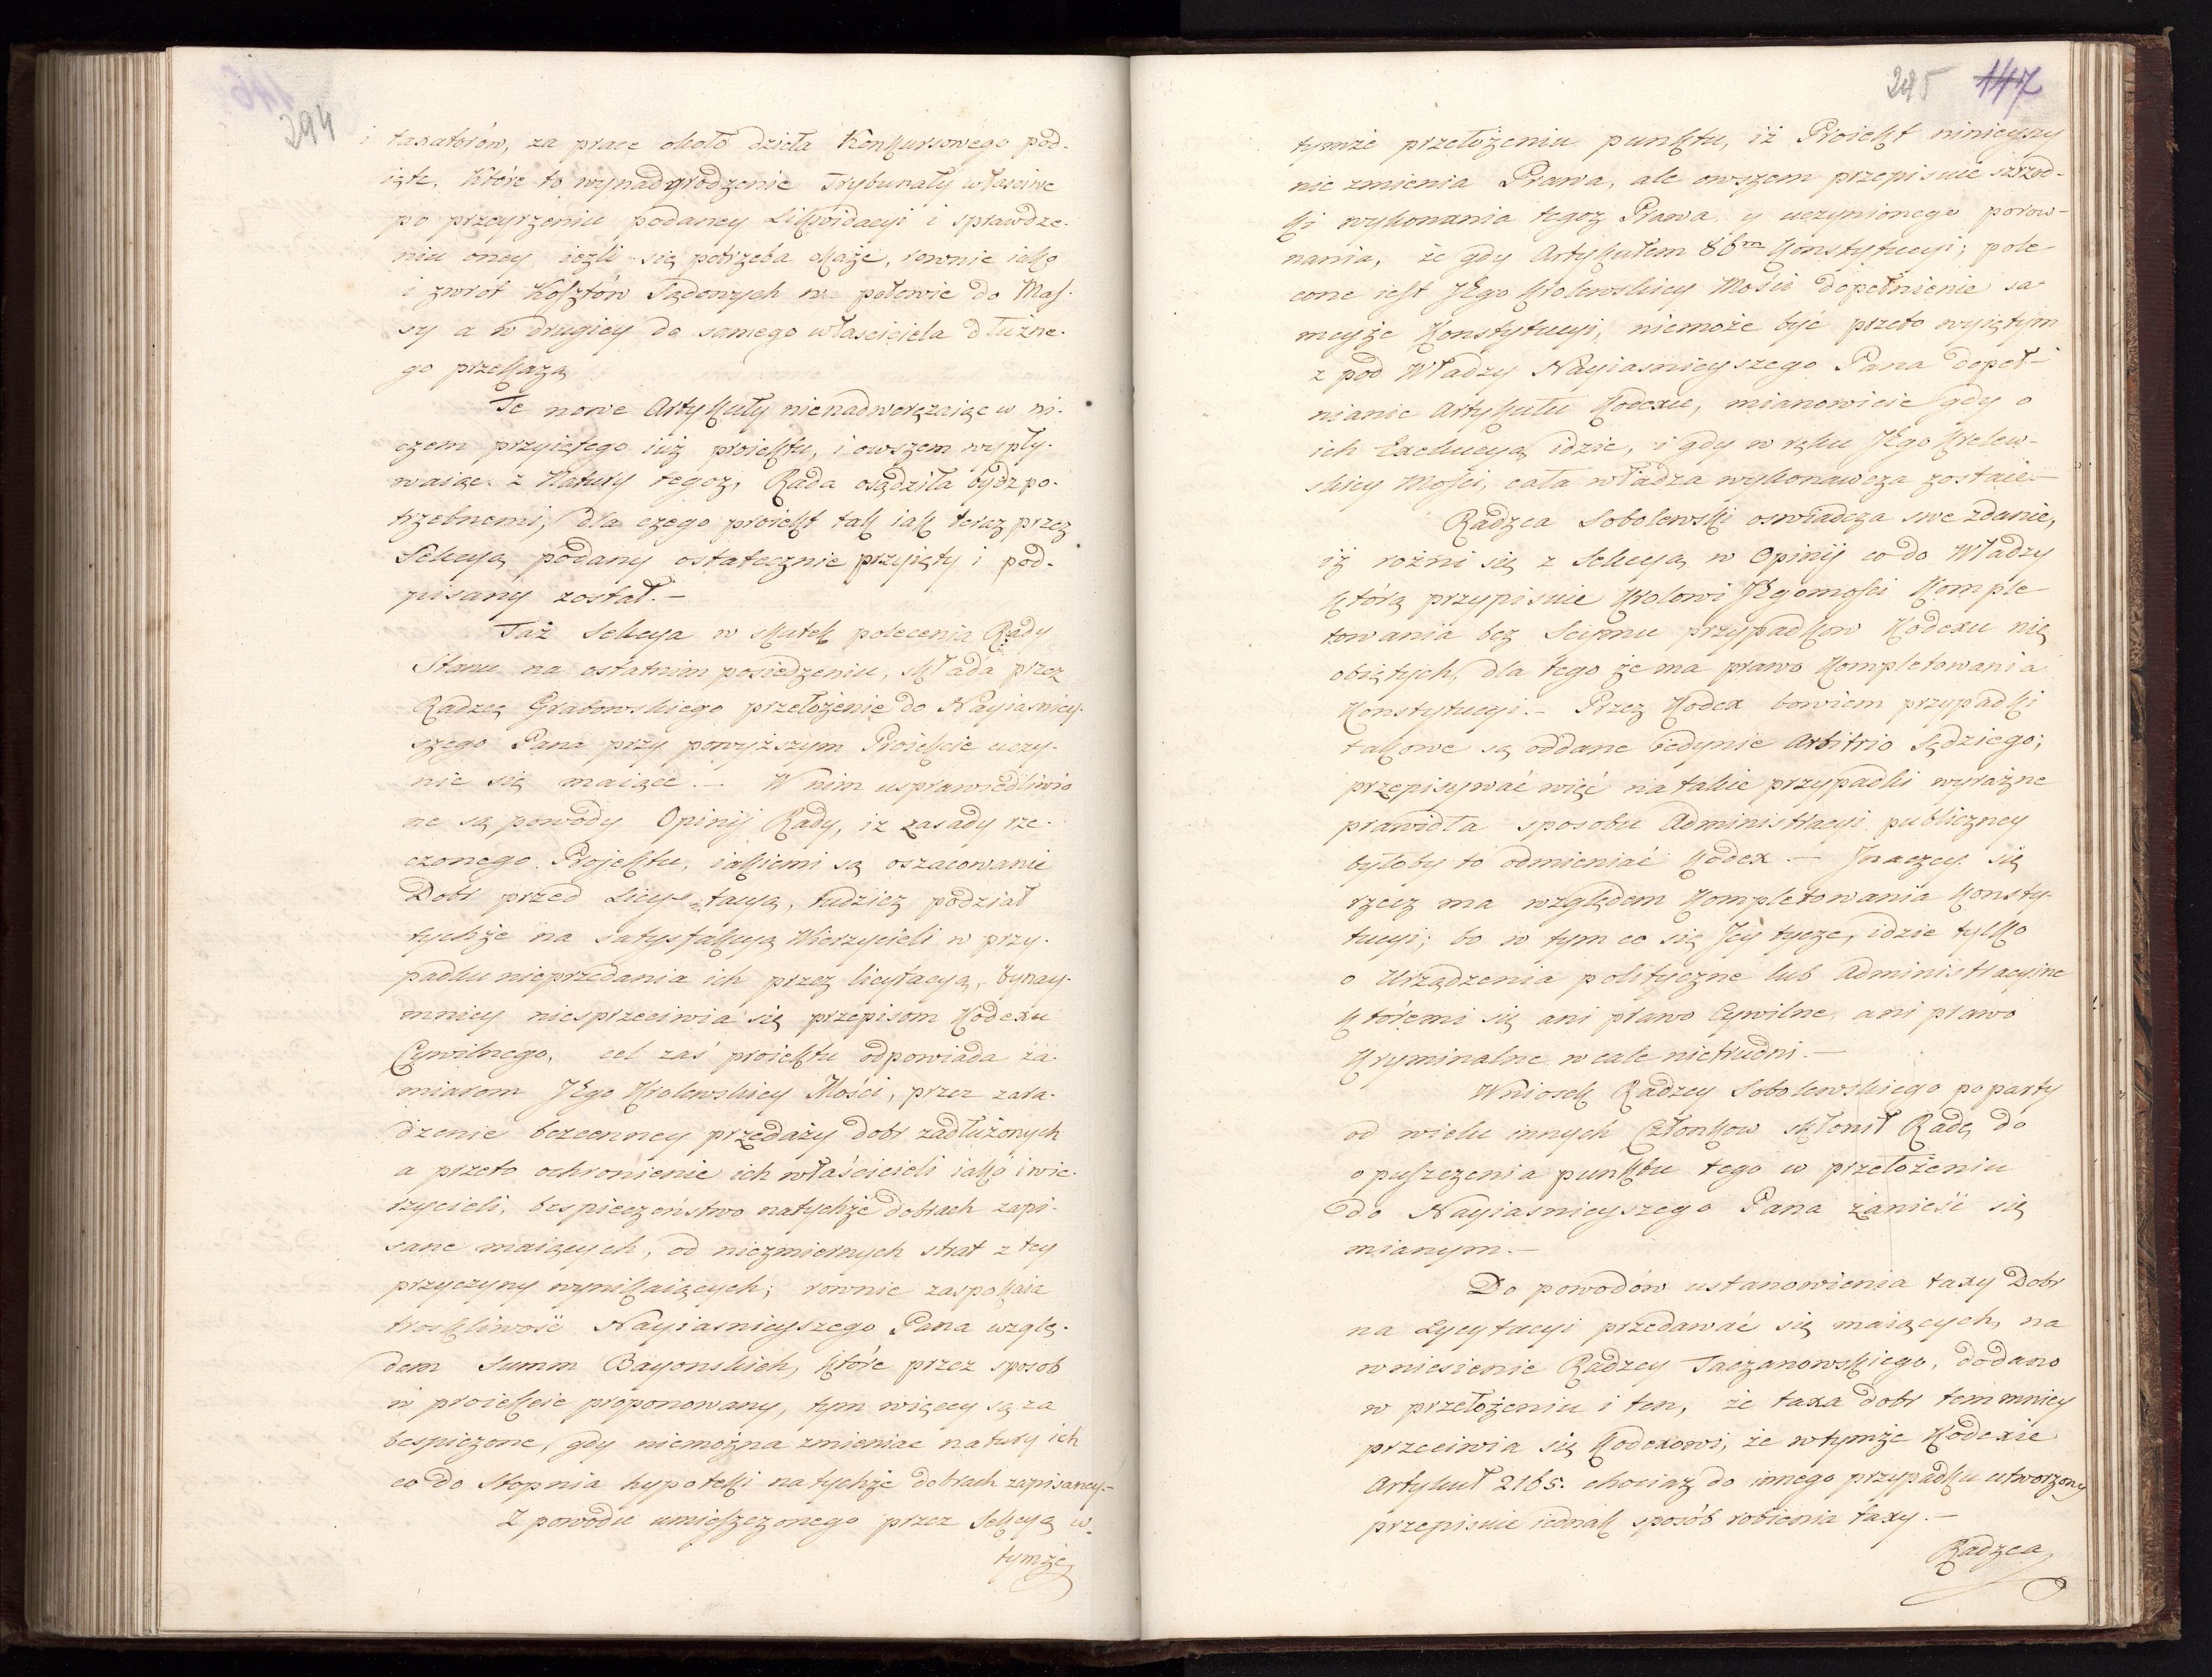 294
i taxatorów, za prace około dzieła Konkursowego pod-
ięte. Które to wynadgrodzenie Trybunały właściwe
po przeyrzeniu podaney Likwidacyi i sprawdze-
niu oney ieżli się potrzeba okaże, rownie iako
i zwrot Kosztów Sądowych w połowie do Mas-
sy a w drugiey do samego właściciela dłużne-
go przekażą
Te nowe Artykuły nienadwerężaiąc w ni-
czem przyiętego iuż proiektu, i owszem wypły-
waiąc z Natury tegoż, Rada osądziła bydź po-
trzebnemi, dla czego proiekt tak iak teraz przez
Sekcyą podany ostatecznie przyięty i pod-
pisany został.-
Taż Sekcya w skutek polecenia Rady
Stanu na ostatnim posiedzeniu, składa przez
Radzcę Grabowskiego przełożenie do Nayiaśniey-
szego Pana przy powyższym Proiekcie uczy-
nić się maiące.- W nim usprawiedliwio
ne są powody Opinij Rady, iż zasady rze-
czonego Projektu, iakiemi są oszacowanie
Dobr przed Licy-tacyą, tudzież podział
tychże na satysfakcyą Wierzycieli w przy-
padku nieprzedania ich przez licytacyą, bynay-
mniey niesprzeciwia się przepisom Kodexu
Cywilnego, cel zaś proiektu odpowiada za-
miarom JEgo Krolewskiey Mości, przez zara-
dzenie bezcenney przedaży dobr zadłużonych
a przeto ochronienie ich właścicieli iako i wie-
rzycieli, bespieczeństwo natychże dobrach zapi-
sane maiących, od niezmiernych strat z tey
przyczyny wynikaiących; rownie zaspokaia
troskliwość Nayiasnieyszego Pana wzglę-
dem Summ Bayonskich, które przez sposob
w proiekcie proponowany, tym więcey są za
bespieczone, gdy niemożna zmieniac natury ich
co do stopnia hypoteki natychże dobrach zapisaney.-
Z powodu umieszczonego przez Sekcyą w
tymże
295 147
tymże przełożeniu punktu, iż Proiekt ninieyszy
nie zmienia Prawa, ale owszem przepisuie szrzod-
ki wykonania tegoż Prawa y uczynionego porow-
nania, że gdy Artykułem 86m Konstytucyi; pole-
cone iest JEgo Krolewskiey Mości dopełnienie sa-
meyże Konstytucyi, niemoże być przeto wyiętym
z pod Władzy Nayiasnieyszego Pana dopeł-
nianie Artykułu Kodexu, mianowicie gdy o
ich Exekucyą idzie, i gdy w ręku JEgo Krolew-
skiey Mości, cała władza wykonawcza zostaie.-
Radzca Sobolewski oswiadcza swe zdanie,
iż rożni się z Sekcyą w Opinij co do Władzy
którą przypisuie Krolowi JEgomości Komple-
towania bez Seymu przypadkow Kodexu nie
obiętych, dla tego że ma prawo Kompletowania
Konstytucyi.- Przez Kodex bowiem przypadki
takowe są oddane iedynie Arbitrio Sędziego;
przepisywać więc na takie przypadki wyraźne
prawidła sposobu Administracyi publiczney
byłoby to odmieniać Kodex.- Inaczey się
rzecz ma względem Kompletowania Konsty-
tucyi; bo w tym co się Jey tycze, idzie tylko
o Urządzenia polityczne lub Administracyine
któremi się ani prawo Cywilne, ani prawo
Kryminalne wcale nietrudni.-
Wniosek Radzcy Sobolewskiego poparty
od wielu innych Członkow skłonił Radę do
opuszczenia punktu tego w przełożeniu
do Nayiasnieyszego Pana zanieść się
mianym.-
Do powodów ustanowienia taxy Dobr
na Lycytacyi przedawać się maiących, na
wniesienie Radzcy Taczanowskiego, dodano
w przełożeniu i ten, że taxa dobr tem mniey
przeciwia się Kodexowi, że wtymże Kodexie
Artykuł 2165. chociaż do innego przypadku utworzony
przepisuie iednak sposób robienia taxy.-
Radzca